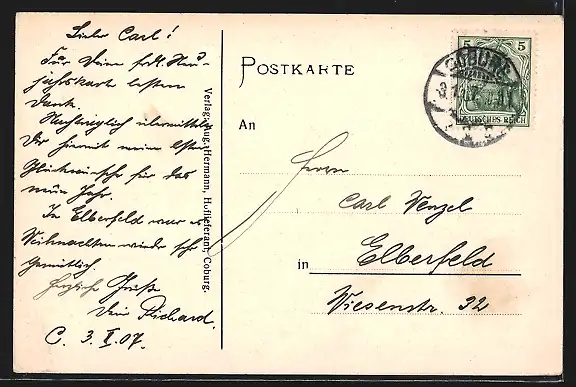 Lieber Carl!
Für Deine frdl. Neu-
jahrskarte besten
Dank.
Nachträglich übermittele
Dir hiermit meine besten
Glückwünsche für das
neue Jahr.
In Elberfeld war es
Weihnachten wieder sehr
gemütlich.
Herzliche Grüße
Dein Richard.
C. 3. I. 07.
Verlag: Aug. Hermann, Hoflieferant, Coburg.
POSTKARTE
An
Herrn
Carl Venzel
in Elberfeld
Wiesenstr. 32
5 5
DEUTSCHES REICH
COBURG